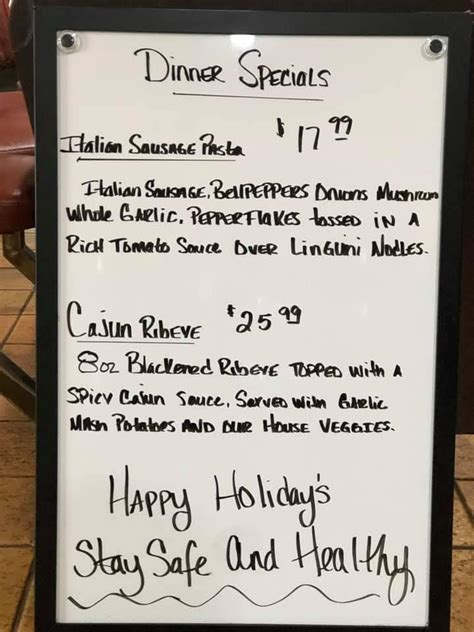 Dinner Specials
Italian Sausage Pasta $17.99
Italian Sausage, Bellpeppers Onions Mushroom
Whole Garlic, Pepperflakes tossed in a
Rich Tomato Sauce over Linguini Nodles.
Cajun Ribeye $25.99
8oz Blackened Ribeye topped with a
Spicy Cajun Sauce, Served with Garlic
Mash Potatoes and our House Veggies.
Happy Holiday's
Stay Safe And Healthy